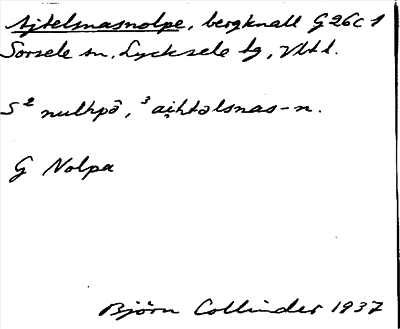 Ajtelsnasnolpe, bergknall G26c1
Sorsele sn, Lycksele lg, Vltl.
S² nulhpō, ³aihtəlsnas-n.
G Nolpa
Björn Collinder 1937